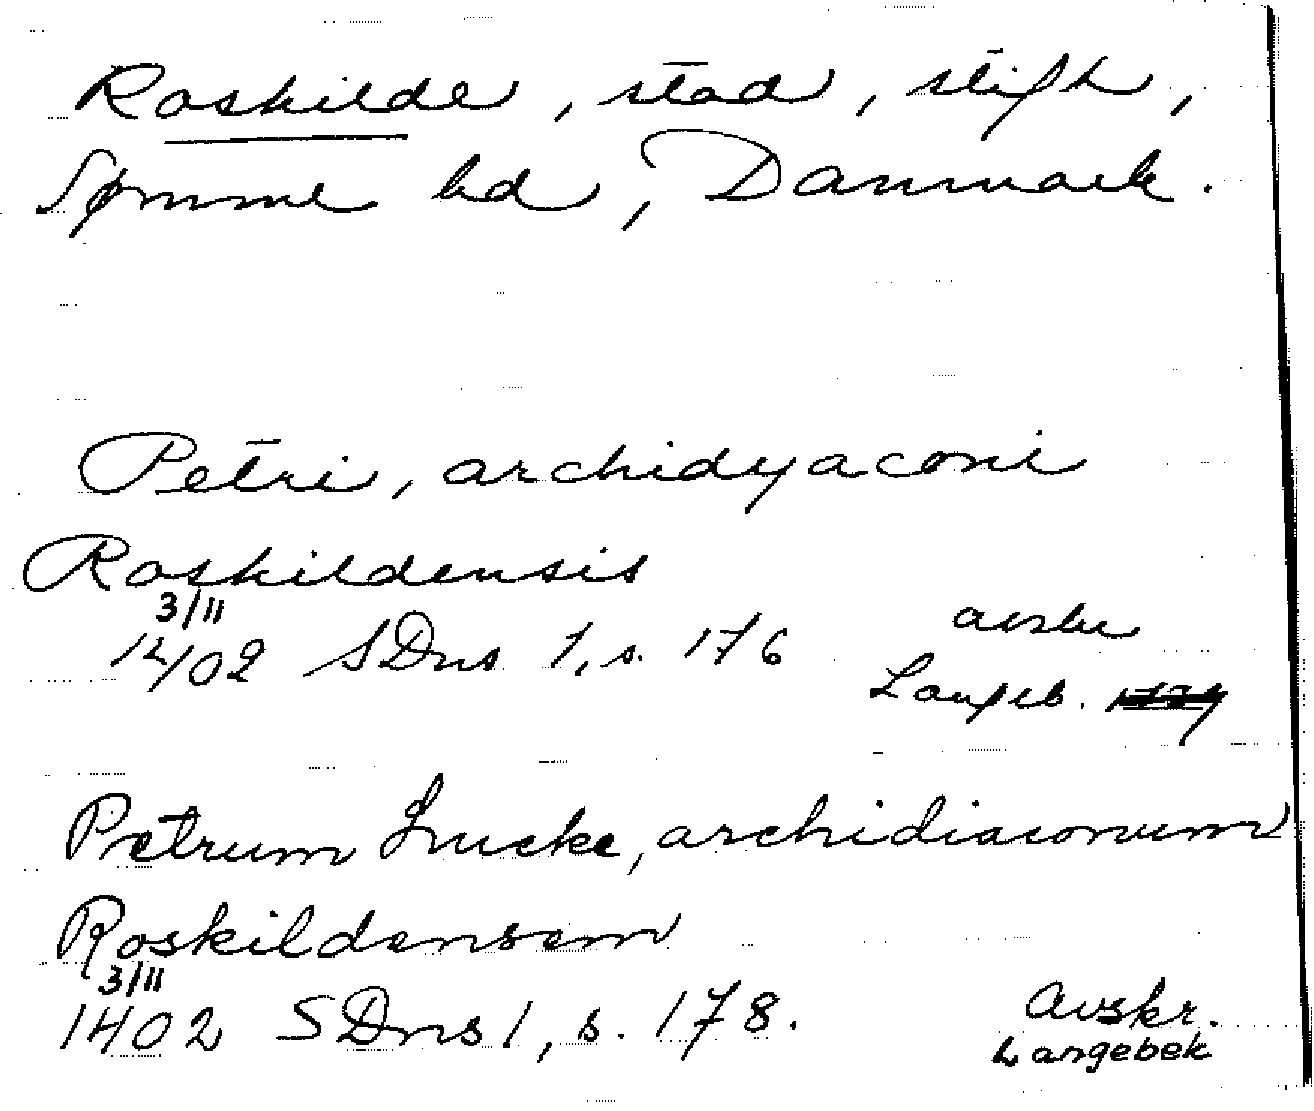 Roskilde, stad, stift,
Sømme hd, Danmark.
Petri, archidyaconi
Roskildensis
3/11
1402 SDns 1, s. 176 avskr
Langeb.
Petrum Lucke, archidiaconum
Roskildensem
3/11
1402 SDns 1, s. 178. Avskr.
Langebek